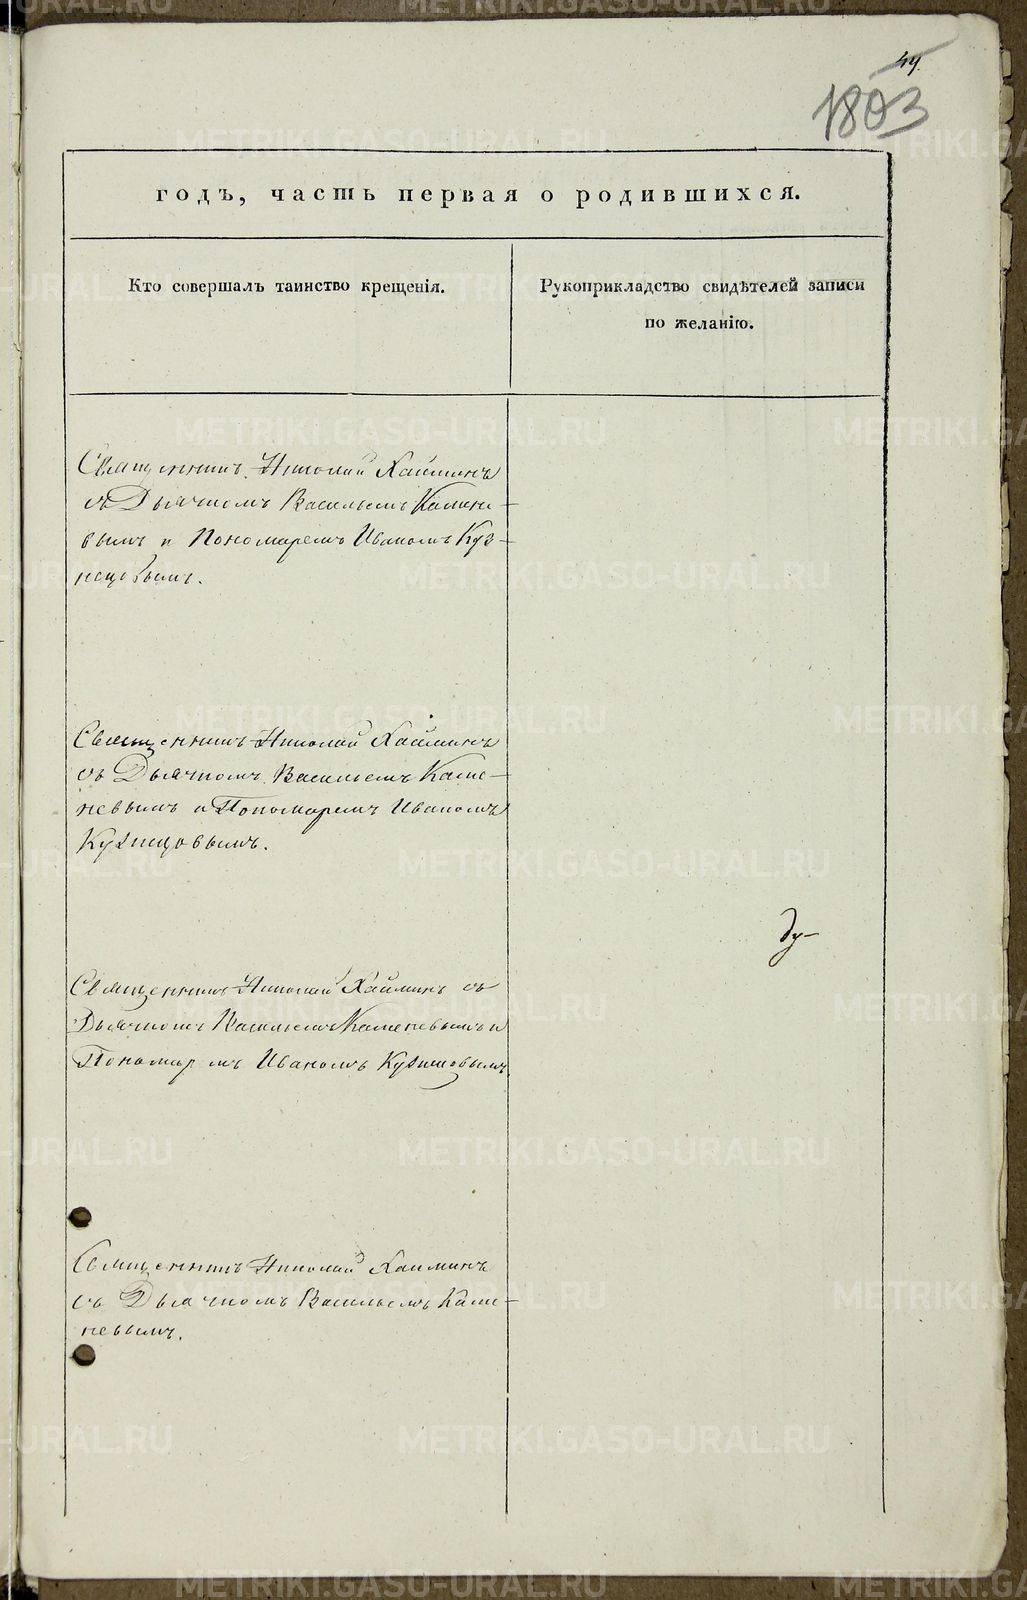 44.
1803
годъ, часть первая о родившихся.
Кто совершалъ таинство крещенія.
Рукоприкладство свидѣтелей записи
по желанію.
Священникъ Николай Хайминъ
съ Дьячкомъ Васильемъ Камене-
вымъ и Пономаремъ Иваномъ Куз-
нецовымъ.
Священникъ Николай Хайминъ
съ Дьячкомъ Васильемъ Каме-
невымъ и Пономаремъ Иваномъ
Кузнецовымъ.
ду-
Священникъ Николай Хайминъ съ
Дьячкомъ Васильемъ Каменевымъ и
Пономаремъ Иваномъ Кузнецовымъ
Священникъ Николай Хайминъ
съ Дьячкомъ Васильемъ Каме-
невымъ.
METRIKI.GASO-URAL.RU